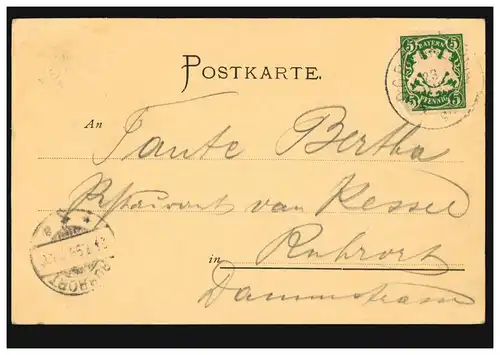 5 BAYERN 5
5 PFENNIG 5
POSTKARTE.
An Tante Bertha
Restaurant van Kessel
in Ruhrort
Dammstrasse
RUHRORT